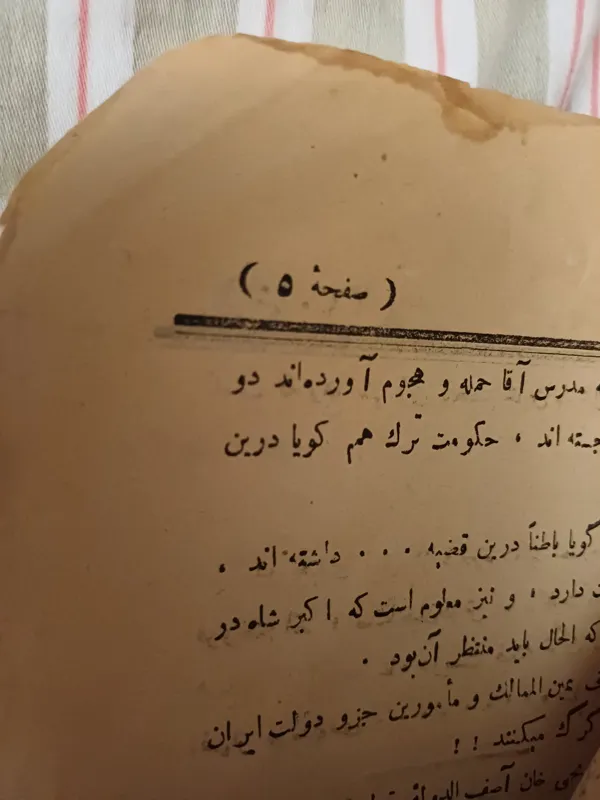 ( صفحهٔ ٥ )
مدرس آقا حمله و هجوم آورده‌اند دو
جسته اند ، حکومت ترك هم کویا درین
گویا باطناً درین قضیه . . . داشته اند ،
دارد ، و نیز معلوم است که اکبر شاه در
که الحال باید منتظر آن بود .
یمین الممالك و مأمورین جزو دولت ایران
کرك میکنند ! !
خان آصف الدوله